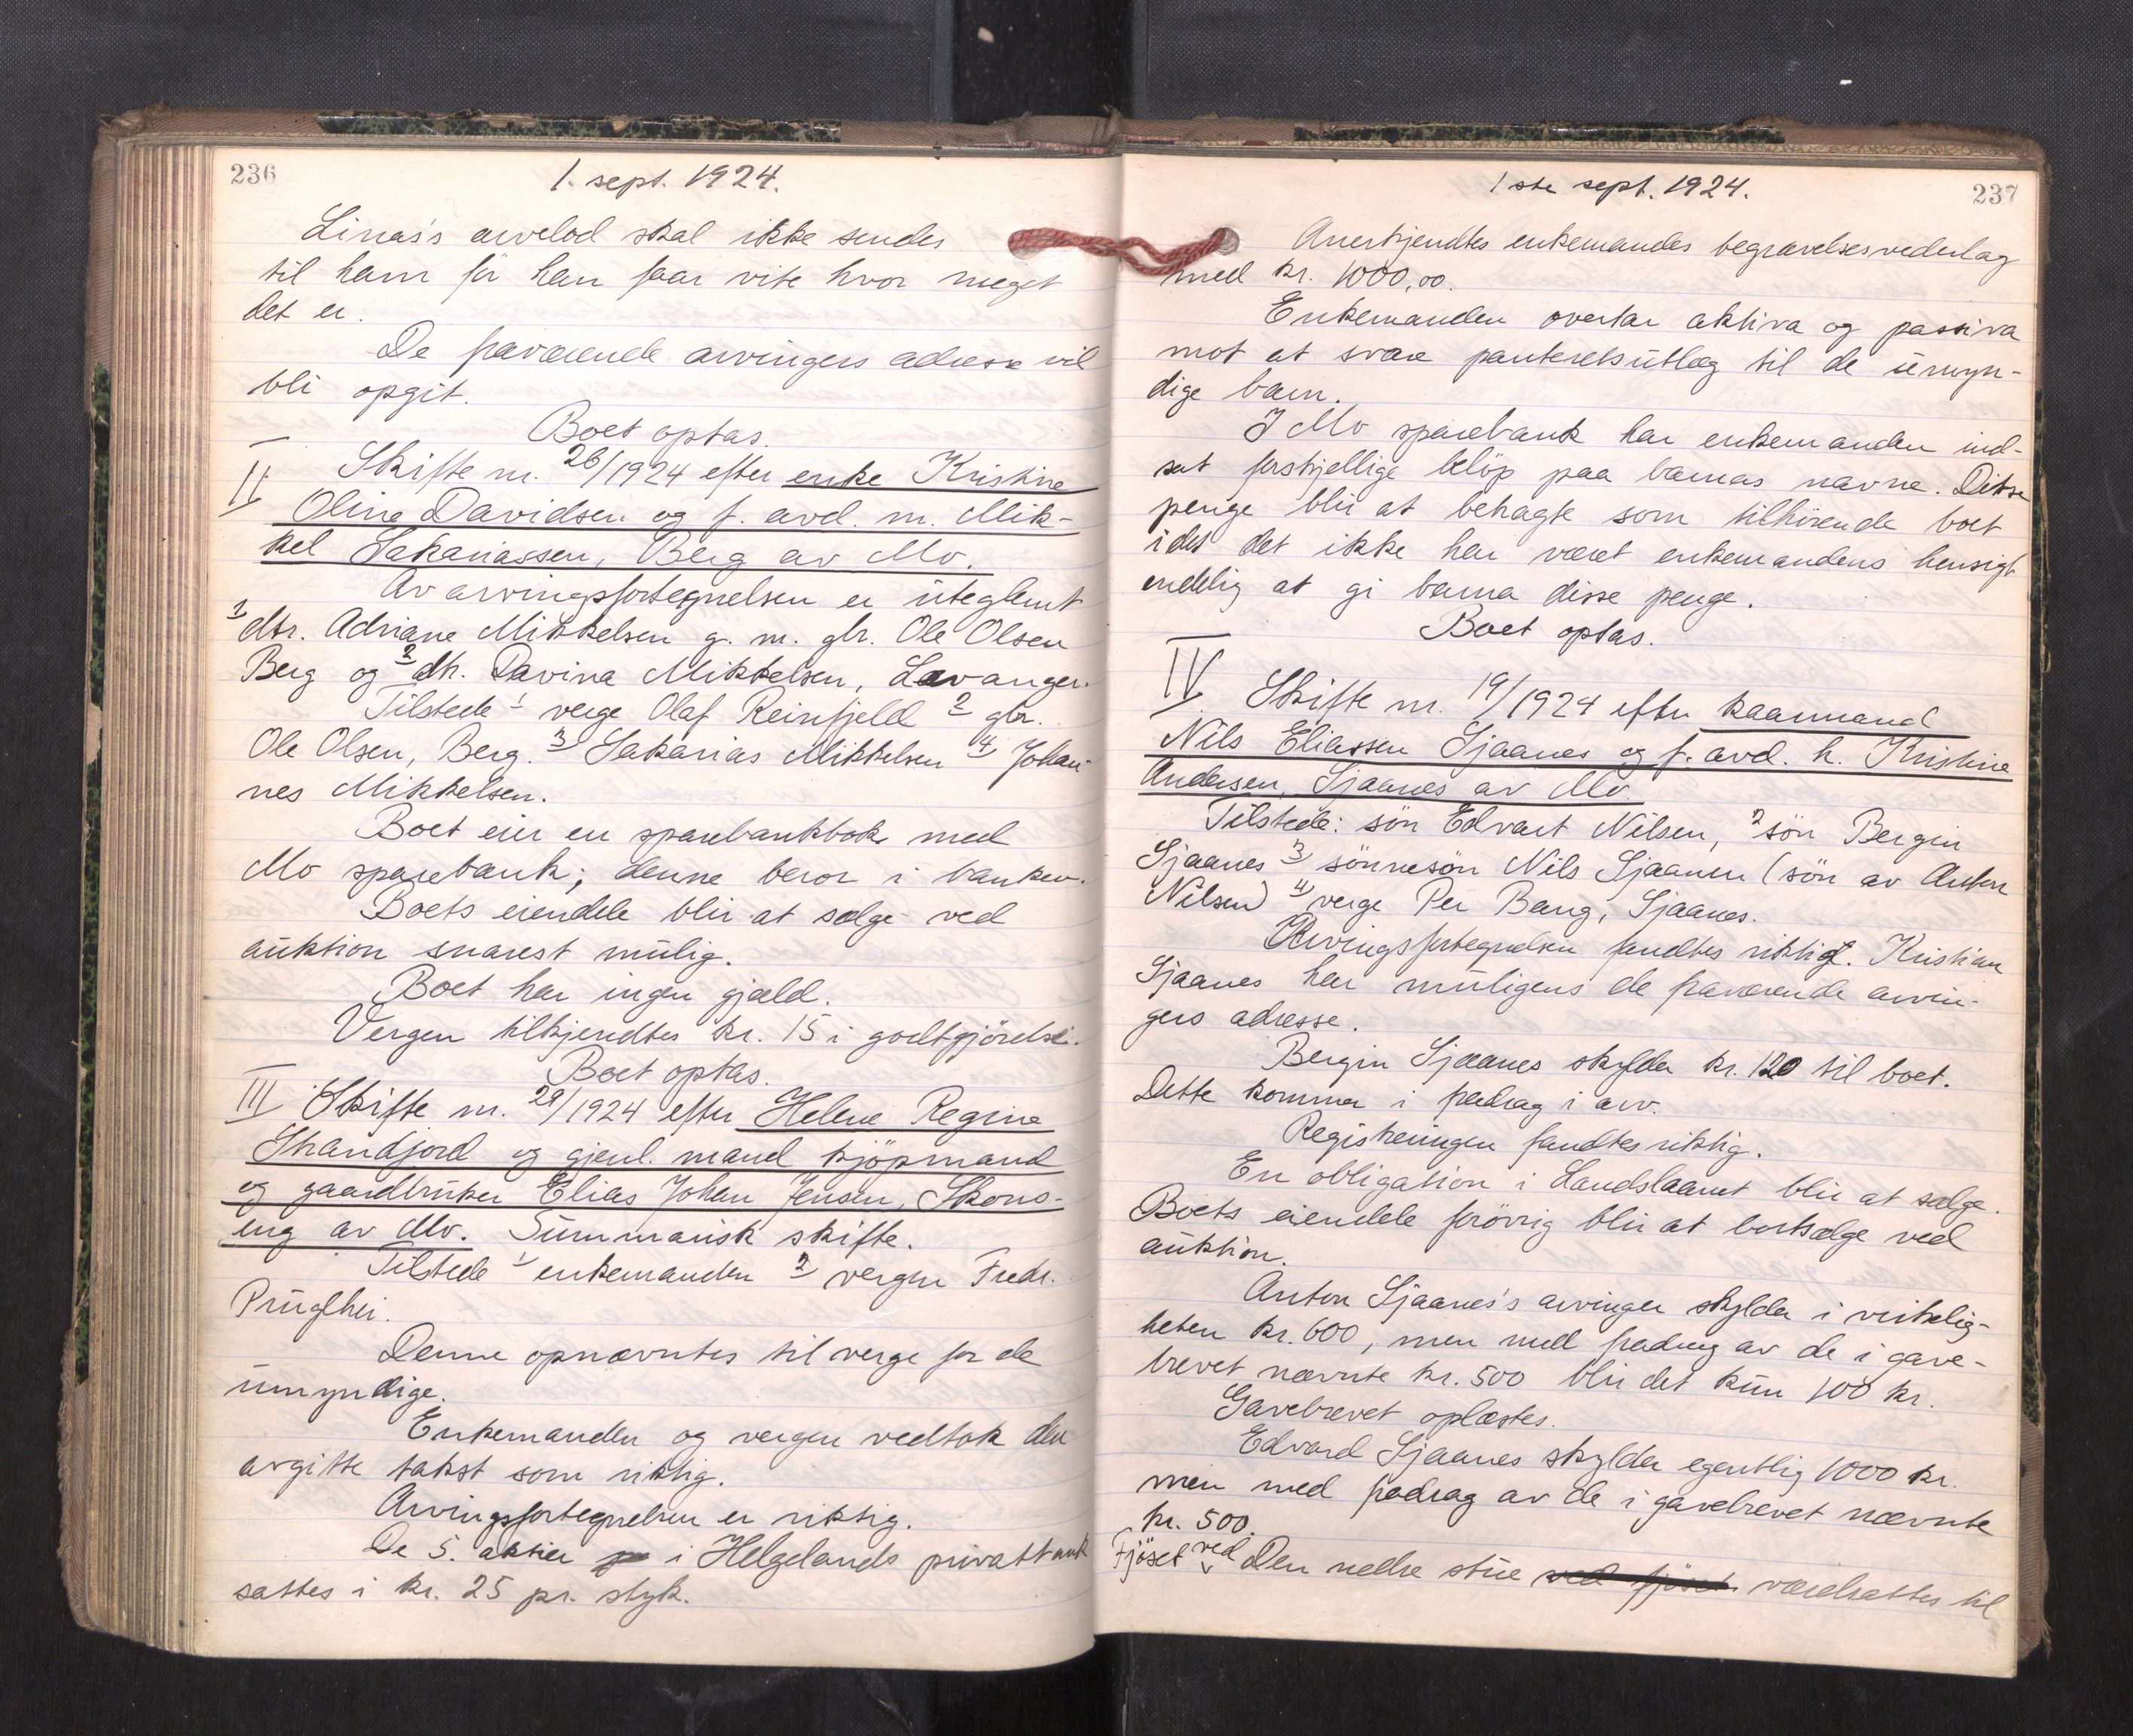 236
1. sept. 1924.
Linas's arvelod skal ikke sendes
til ham før han faar vite hvor meget
det er.
De fraværende arvingers adresse vil
bli opgit.
Boet optas.
II Skifte nr. 26/1924 efter enke Kristine
Oline Davidsen og f. avd. m. Mik-
kel Sakariassen, Berg av Mo.
Av arvingsfortegnelsen er uteglemt
1) dtr. Adriane Mikkelsen g. m. gbr. Ole Olsen
Berg og 2) dtr. Davina Mikkelsen, Lavangen.
Tilstede 1) verge Olaf Reinfjeld 2) gbr.
Ole Olsen, Berg. 3) Sakarias Mikkelsen 4) Johan-
nes Mikkelsen.
Boet eier en sparebankbok med
Mo sparebank; denne beror i banken.
Boets eiendele blir at sælge ved
auktion snarest mulig.
Boet har ingen gjæld.
Vergen tilkjendtes kr. 15 i godtgjörelse.
Boet optas.
III Skifte nr. 29/1924 efter Helene Regine
Strandjord og gjenl. mand kjöpmand
og gaardbruker Elias Johan Jensen, Skons-
eng av Mo. Summarisk skifte.
Tilstede 1) enkemanden 2) vergen Fredr.
Pruglhei.
Denne opnævntes til verge for de
umyndige.
Enkemanden og vergen vedtok den
avgitte takst som riktig.
Arvingsfortegnelsen er riktig.
De 5. aktier i Helgelands privatbank
sattes i kr. 25 pr. styk.
1ste sept. 1924.
237
Anerkjendtes enkemandes begravelsesvederlag
med kr. 1000,00.
Enkemanden overtar aktiva og passiva
mot at svare panteretsutlæg til de umyn-
dige barn.
I Mo sparebank har enkemanden ind-
sat forskjellige beløp paa barnas navne. Disse
penge blir at betragte som tilhörende boet
idet det ikke har været enkemandens hensigt
endelig at gi barna disse penge.
Boet optas.
IV. Skifte nr. 19/1924 efter kaarmand
Nils Eliassen Sjaanes og f. avd. h. Kristine
Andersen, Sjaanes av Mo.
Tilstede: sön Edvart Nilsen, 2) sön Bergin
Sjaanes 3) sönnesön Nils Sjaanes (sön av Anton
Nilsen) 4) verge Per Bang, Sjaanes.
Arvingsfortegnelsen fandtes riktig. Kristian
Sjaanes har muligens de fraværende arvin-
gers adresse.
Bergin Sjaanes skylder kr. 120 til boet.
Dette kommer i fradrag i arv.
Registreringen fandtes riktig.
En obligation i Landslaanet blir at sælge.
Boets eiendele forövrig blir at bortsælge ved
auktion.
Anton Sjaanes's arvinger skylder i virkelig-
heten kr. 600, men med fradrag av de i gave-
brevet nævnte kr. 500 blir det kun 100 kr.
Gavebrevet oplæstes.
Edvard Sjaanes skylder egentlig 1000 kr.
men med fradrag av de i gavebrevet nævnte
kr. 500.
Fjöset ved Den nedre stue ved fjöset værdsattes til